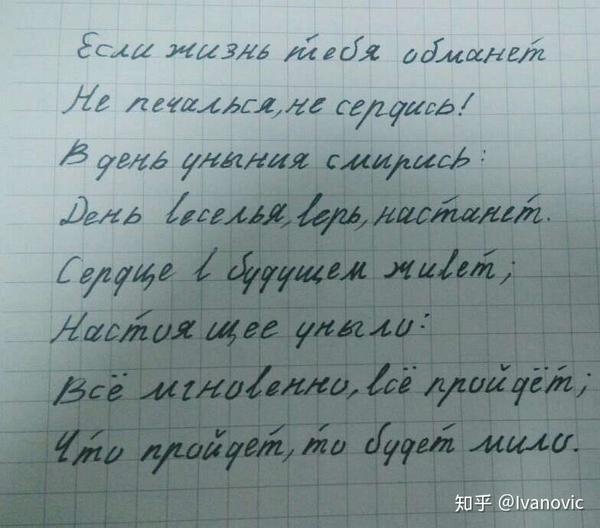 Если жизнь тебя обманет
Не печалься, не сердись!
В день уныния смирись:
День веселья, верь, настанет.
Сердце в будущем живет;
Настоящее уныло:
Всё мгновенно, всё пройдёт;
Что пройдет, то будет мило.
知乎 @Ivanovic